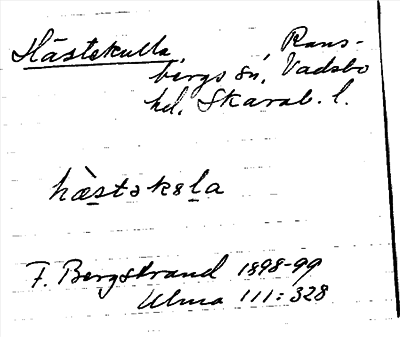 Hästekulla, Rans-
bergs sn, Vadsbo
hd, Skarab. l.
hàstəkəla
F. Bergstrand 1898-99
Ulma 111:328